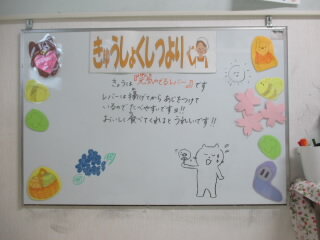 きゅうしょくしつより
きょうは『栄養のどるレバー』です
レバーは揚げてから あじをつけて
いるので たべやすいです!!
おいしく食べてくれると うれしいです!!